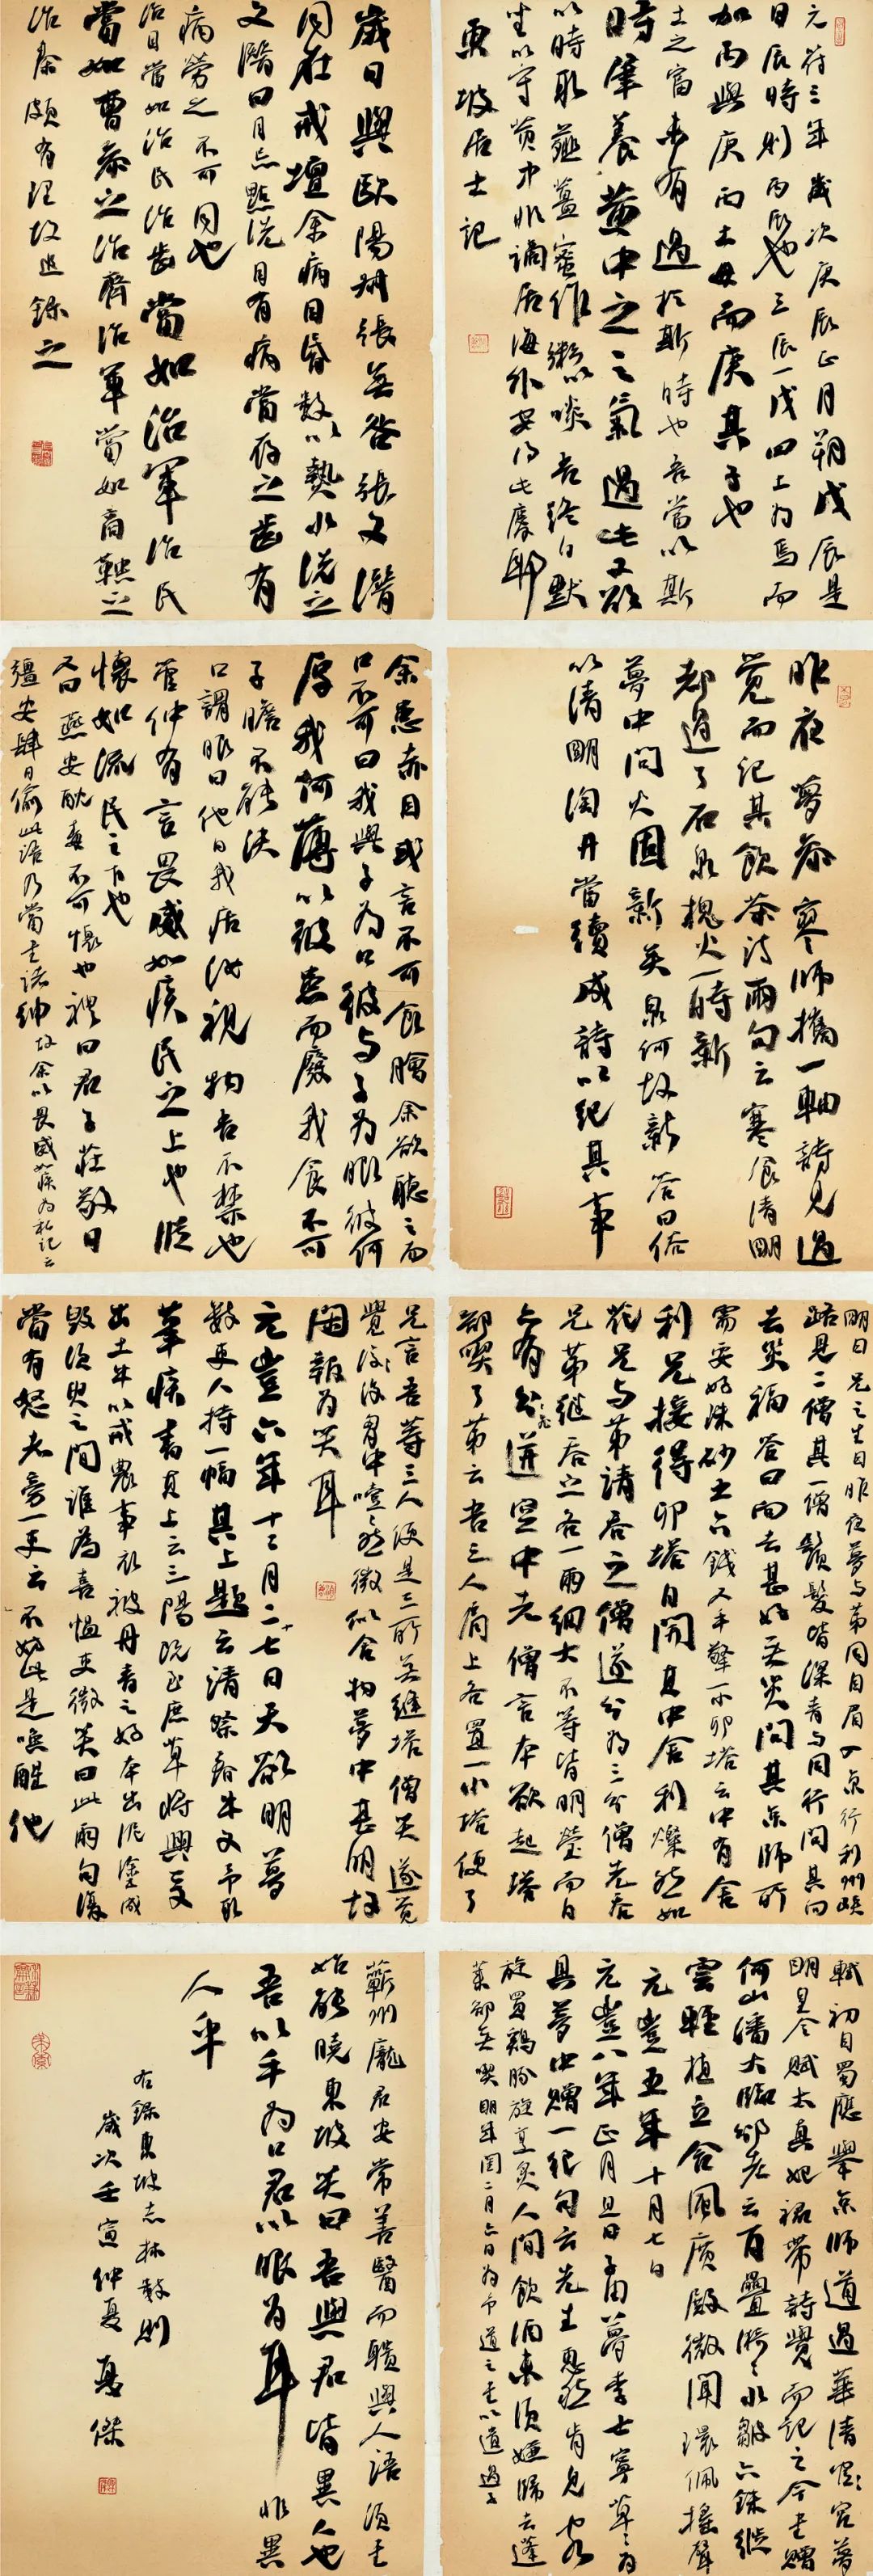 元符三年歲次庚辰正月朔戊辰是
日辰時則丙辰也三辰一戊四土會焉而
加丙與庚丙土母而庚其子也
土之富未有過於斯時也吾當以斯
時肇養黃中之氣過此又欲
以時取薤薑蜜作粥以啖吾終日默
坐以守黃中非謫居海外安得此慶耶
東坡居士記
歲日與歐陽叔張無咎張文潛
同在戒壇余病目昏數以熱水洗之
文潛曰目忌點洗目有病當存之齒有
病勞之不可同也
治目當如治民治齒當如治軍治民
當如曹參之治齊治軍當如商鞅之
治秦頗有理故追錄之
昨夜夢參寥師攜一軸詩見過
覺而記其飲茶詩兩句云寒食清明
都過了石泉槐火一時新
夢中問火固新矣泉何故新答曰俗
以清明淘井當續成詩以紀其事
余患赤目或言不可食膾余欲聽之而
口不可曰我與子為口彼與子為眼彼何
厚我何薄以彼患而廢我食不可
子瞻不能決
口謂眼曰他日我痁汝視物吾不禁也
管仲有言畏威如疾民之上也從
懷如流民之下也
又曰燕安酖毒不可懷也禮曰君子莊敬日
彊安肆日偷此語乃當書諸紳故余以畏威如疾為私記云
明日兄之生日昨夜夢與弟同自眉入京行利州峽
路見二僧其一僧鬚髮皆深青與同行問其向
去災福答曰向去甚好無災問其京師所
需要好硃砂五六錢又手擎一小卯塔云中有舍
利兄接得卯塔自開其中舍利燦然如
花兄與弟請吞之僧遂分為三分僧先吞
兄弟繼吞之各一兩細大不等皆明瑩而白
亦有飛迸空中者僧言本欲起塔
卻喫了弟云吾三人肩上各置一小塔便了
兄言吾等三人便是三所無縫塔僧笑遂覺
覺後胸中噎噎然微似含物夢中甚明故
閑報為笑耳
元豐六年十二月二十七日天欲明夢
數吏人持一幅其上題云請祭春牛文予取
筆疾書其上云三陽既至庶草將興爰
出土牛以戒農事衣被丹青之好本出泥塗成
毀須臾之間誰為喜慍吏微笑曰此兩句復
當有怒者旁一吏云不妨此是喚醒他
軾初自蜀應舉京師道過華清宮夢
明皇令賦太真妃裙帶詩覺而記之今書贈
何山潘大臨邠老云百疊漪漪水皺六銖縰縰
雲輕植立含風廣殿微聞環佩搖聲
元豐五年十月七日
元豐八年正月旦日子由夢李士寧草草為
具夢中贈一絕句云先生惠然肯見客
旋買雞豚旋烹炙人間飲酒未須嫌歸去蓬
萊卻無喫明年閏二月六日為予道之書以遺過子
蘄州龐君安常善醫而聵與人語須書
始能曉東坡笑曰吾與君皆異人也
吾以手為口君以眼為耳非異
人乎
右錄東坡志林數則
歲次壬寅仲夏